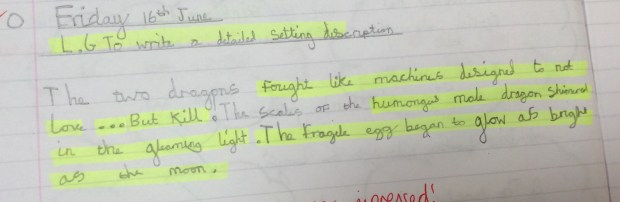 Friday 16th June
L.G To write a detailed setting discription
The two dragons fought like machines designed to not
Love ... But Kill. The scales of the humongus male dragon shimmerd
in the gleaming light. The fragile egg began to glow as bright
as the moon.
impressed!